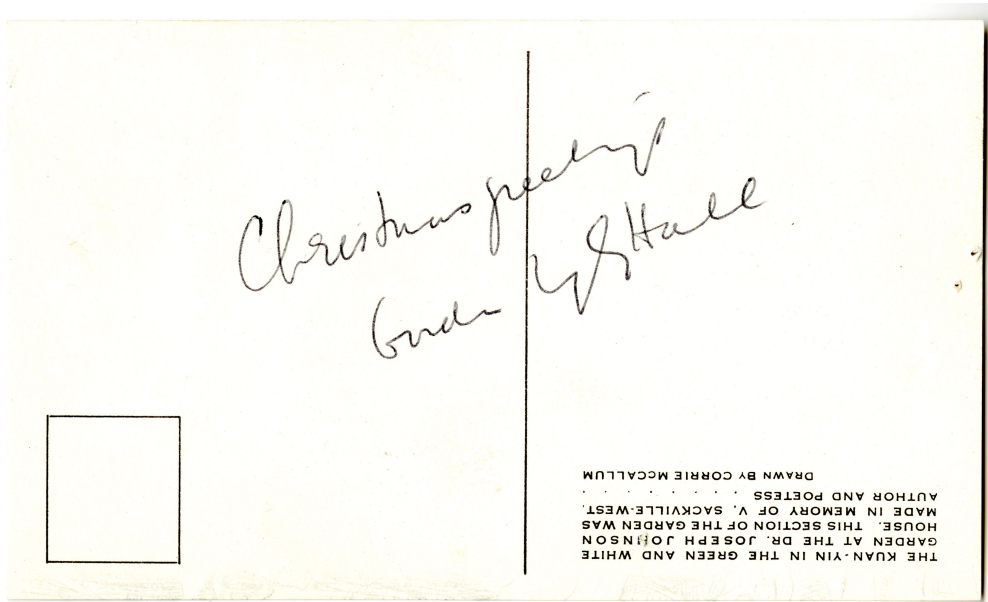 Christmas greetings
Gordon Hall
THE KUAN-YIN IN THE GREEN AND WHITE
GARDEN AT THE DR. JOSEPH JOHNSON
HOUSE. THIS SECTION OF THE GARDEN WAS
MADE IN MEMORY OF V. SACKVILLE-WEST,
AUTHOR AND POETESS . . . . . . . .
DRAWN BY CORRIE McCALLUM